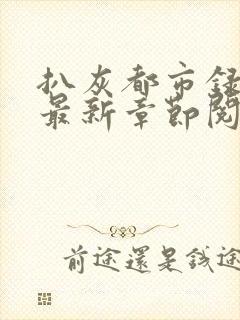 扒灰都市録
最新章節閱
前途還是錢途